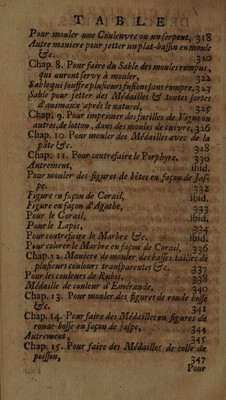 TABLE
Pour mouler une Couleuvre ou un serpent, 318
Autre maniere pour jetter un plat-bassin en moule
&c. 320
Chap. 8. Pour faire du Sable des moules rompus,
qui auront servy à mouler, 322
Sable qui souffre plusieurs fusions sans rompre, 323
Sable pour jetter des Médailles & toutes sortes
d'animaux aprés le naturel, 325
Chap. 9. Pour imprimer des fueilles de Vigne ou
autres, de lotton, dans des moules de cuivre, 326
Chap. 10. Pour mouler des Médailles avec de la
pâte &c. 328
Chap. 11. Pour contrefaire le Porphyre. 330
Autrement, ibid.
Pour mouler des figures de bêtes en façon de Jas-
pe. 332
Figure en façon de Corail, ibid.
Figure en façon d'Agathe, 333
Pour le Corail, ibid.
Pour le Lapis, 334
Pour contrefaire le Marbre &c. ibid.
Pour colorer le Marbre en façon de Corail, 336
Chap. 12. Maniere de mouler des basses tailles de
plusieurs couleurs transparentes &c. 337
Pour les couleurs de Rubis, 338
Médaille de couleur d'Emeraude, 340
Chap. 13. Pour mouler des figures de ronde bosse
&c. 341
Chap. 14. Pour faire des Médailles ou figures de
ronde-bosse en façon de jaspe, 344
Autrement, 345
Chap. 15. Pour faire des Médailles de colle de
poisson, 347
Pour